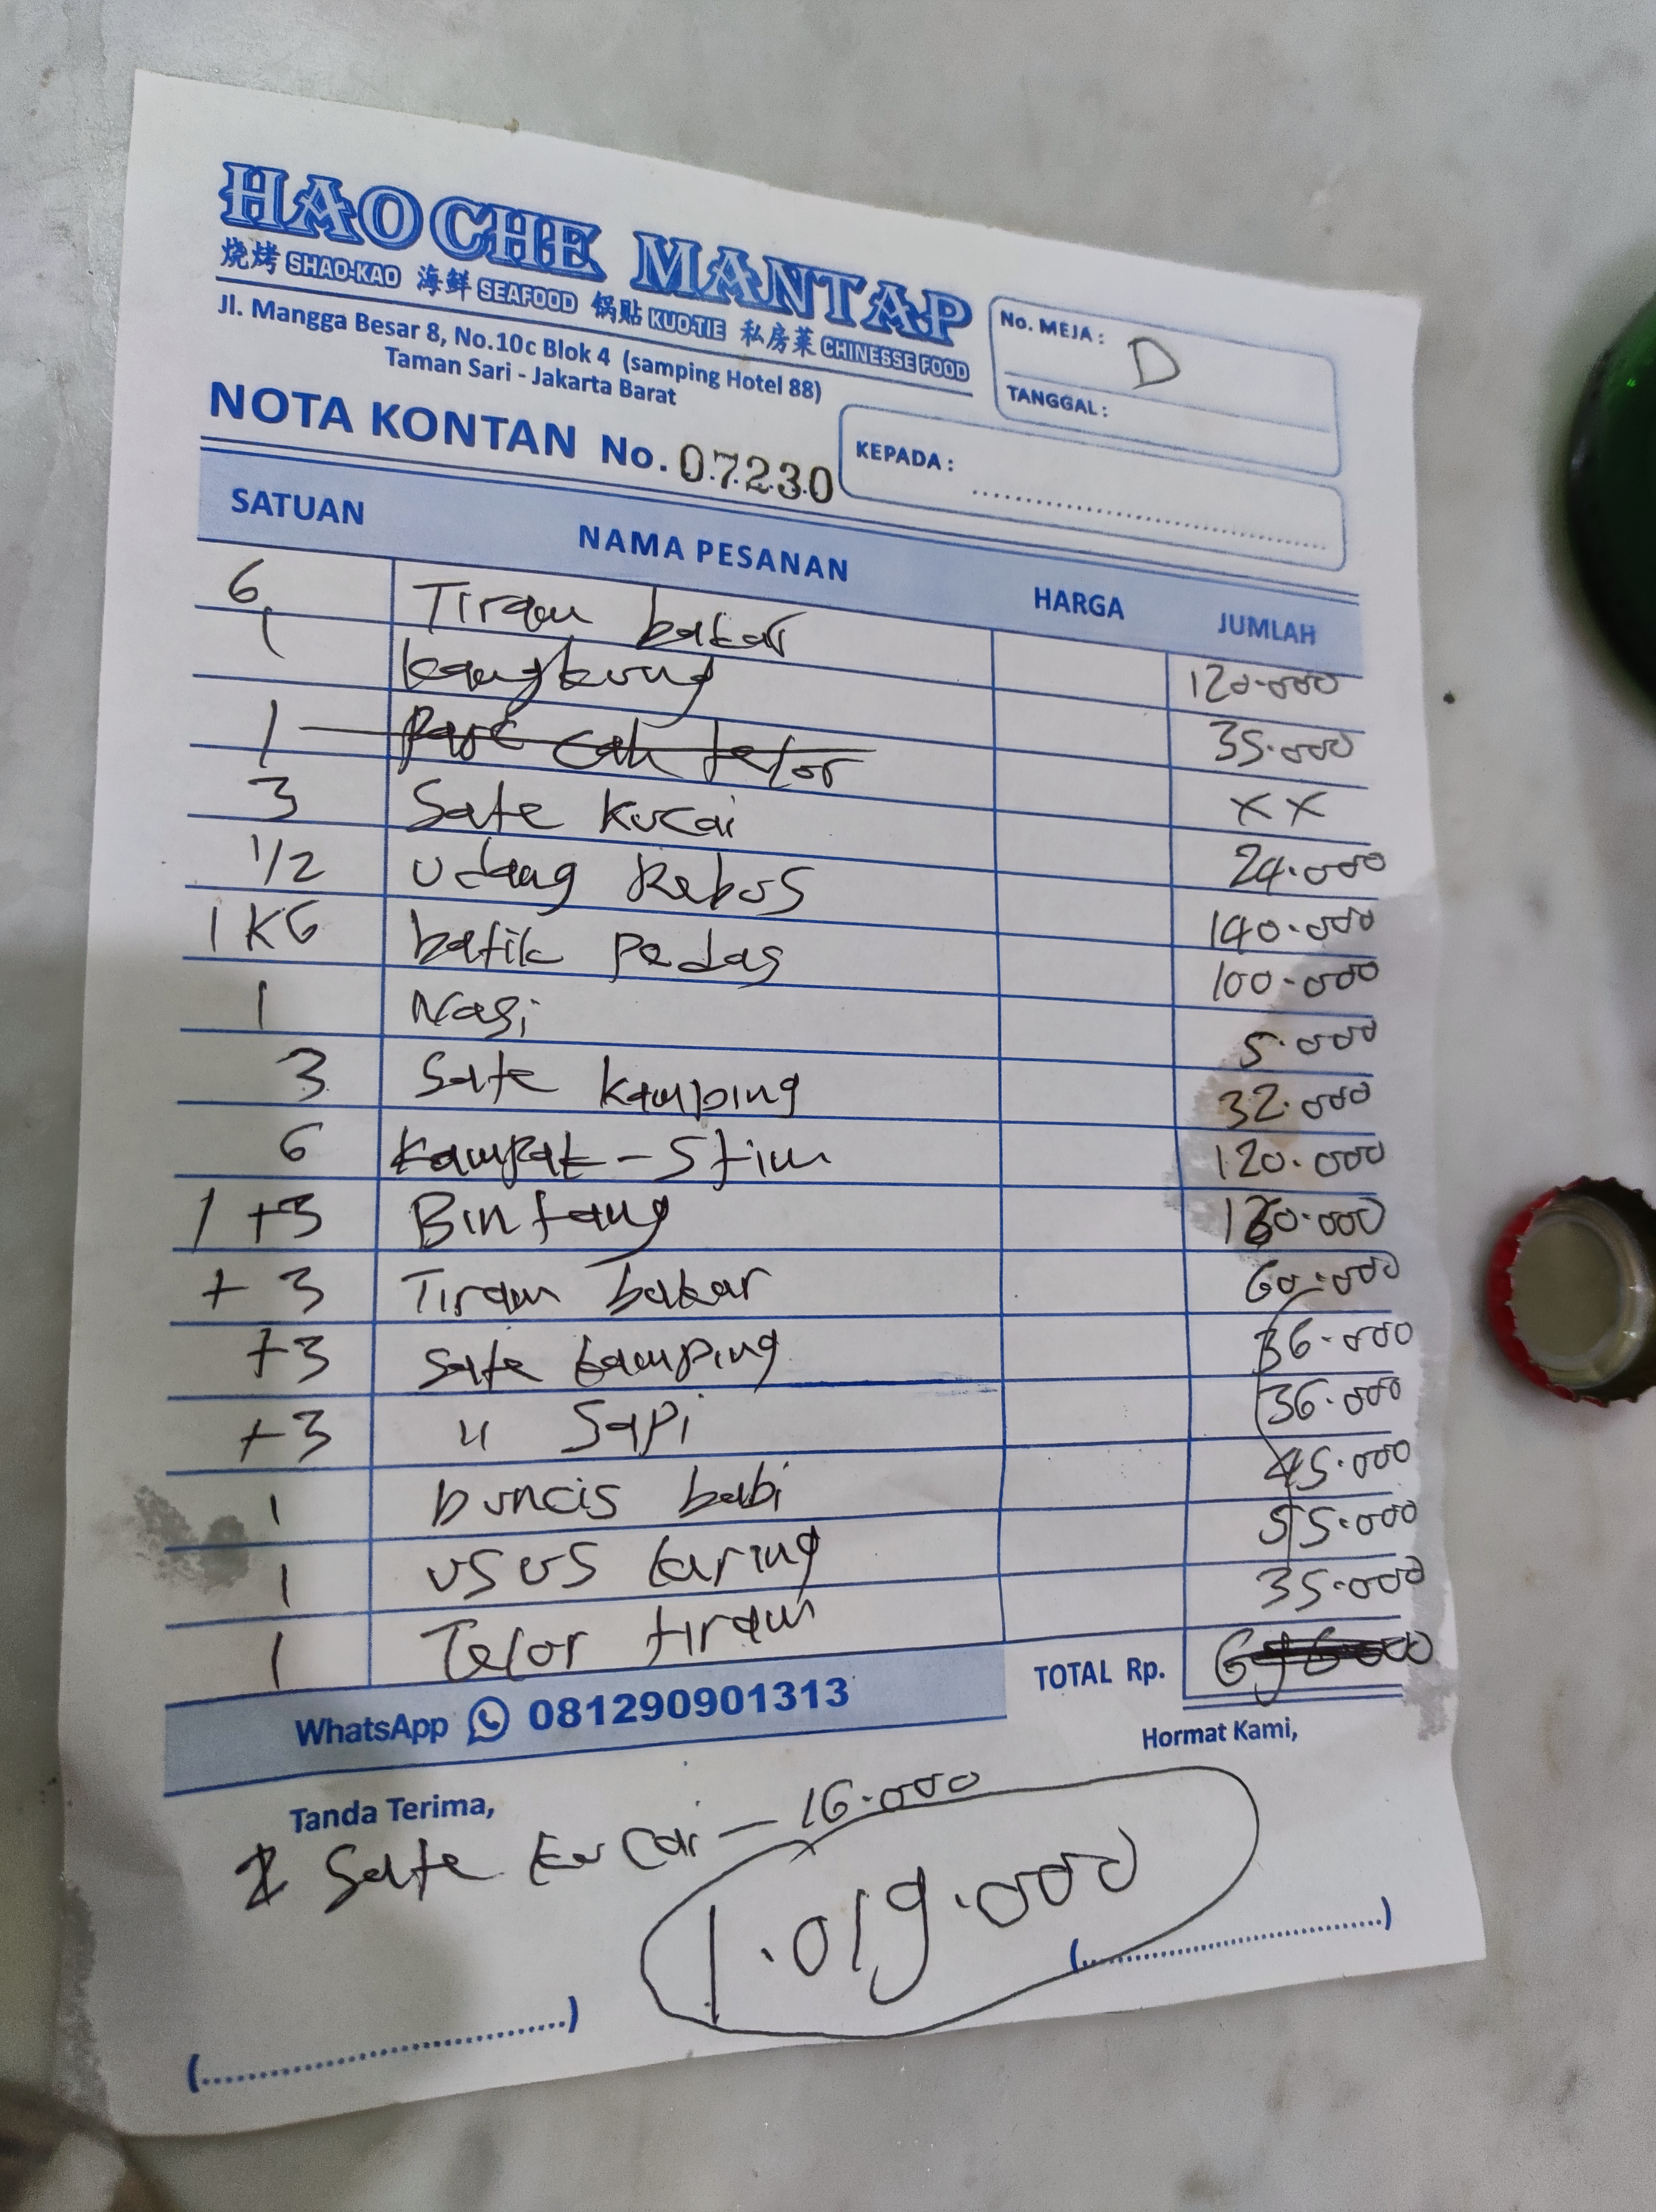 HAO CHE MANTAP
烧烤 SHAO-KAO 海鲜 SEAFOOD 锅贴 KUO-TIE 私房菜 CHINESSE FOOD
Jl. Mangga Besar 8, No.10c Blok 4 (samping Hotel 88)
Taman Sari - Jakarta Barat
No. MEJA : D
TANGGAL :
NOTA KONTAN No. 07230
KEPADA :
SATUAN NAMA PESANAN HARGA JUMLAH
6 Tiram bakar 120.000
1 kangkung 35.000
1 Pare cah telor XX
3 Sate Kucai 24.000
1/2 Udang Rebus 140.000
1 KG batik Pedas 100.000
1 Nasi 5.000
3 Sate kamping 32.000
6 kampak-Stim 120.000
1 +3 Bintang
+ 3 Tiram bakar 60.000
+3 Sate kamping 36.000
+3 " Sapi 36.000
1 buncis babi 45.000
1 USUS karing 55.000
1 Telor tiram 35.000
TOTAL Rp.
WhatsApp 081290901313
Hormat Kami,
Tanda Terima,
2 Sate kucai - 16.000
1.019.000
(....................................)
(....................................)